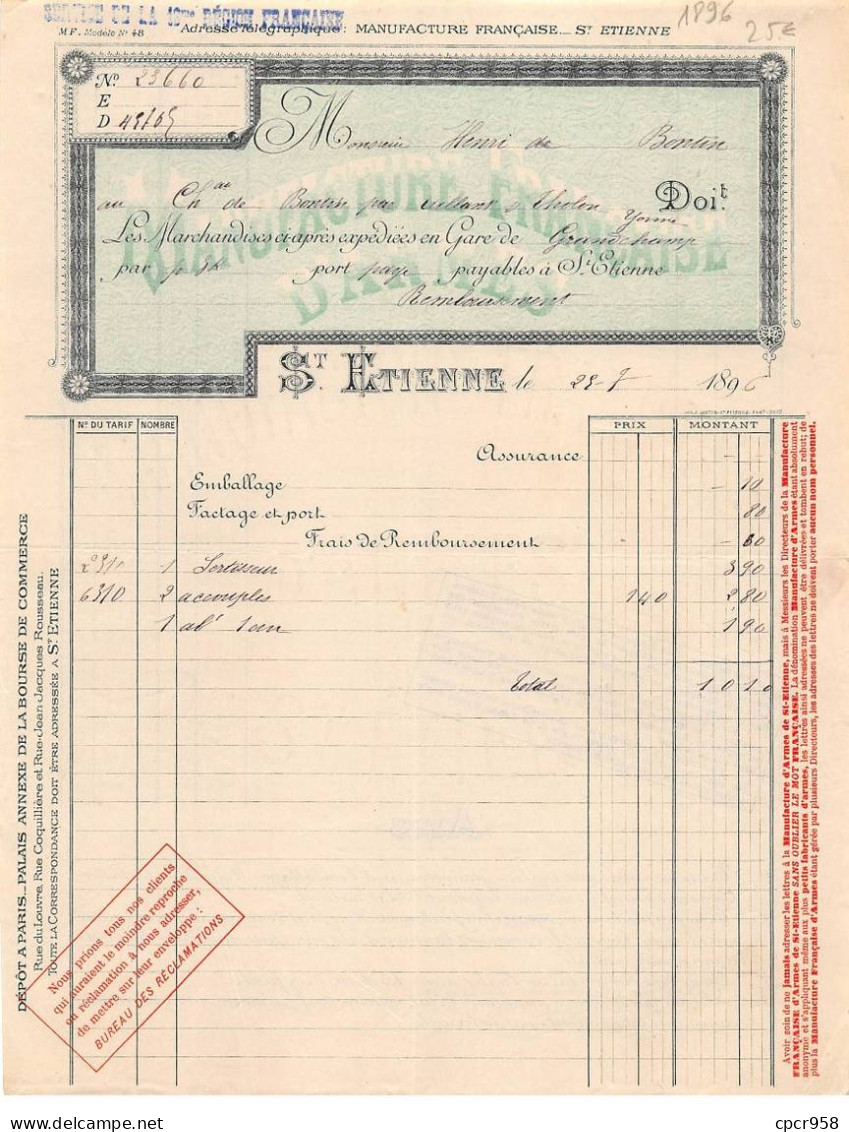 SERVICE DE LA 16me RÉGION FRANÇAISE
1896
25€
MF. Modèle No 48
Adresse Télégraphique: MANUFACTURE FRANÇAISE_ ST ETIENNE
No 23660
E
D
Monsieur Henri de Bontin
au Chau de Bontin par Thelon Doit
Yonne
Les Marchandises ci-après expédiées en Gare de Grandchamp
par port payé payables à St Etienne
Remboursement
MANUFACTURE FRANÇAISE
D'ARMES
ST. ETIENNE le 1896
No DU TARIF NOMBRE PRIX MONTANT
Assurance
Emballage - 10
Factage et port 80
Frais de Remboursement - 60
1 Sertisseur 3 90
6310 2 accouples 1 40 2 80
1 abt 1 an 1 90
Total 10 10
DÉPÔT A PARIS_ PALAIS ANNEXE DE LA BOURSE DE COMMERCE
Rue du Louvre, Rue Coquillière et Rue Jean Jacques Rousseau.
TOUTE LA CORRESPONDANCE DOIT ÊTRE ADRESSÉE A ST ETIENNE
Nous prions tous nos clients
qui auraient le moindre reproche
ou réclamation à nous adresser,
de mettre sur leur enveloppe :
BUREAU DES RÉCLAMATIONS
Avoir soin de ne jamais adresser les lettres à la Manufacture d'Armes de St-Etienne, mais à Messieurs les Directeurs de la Manufacture
FRANÇAISE d'Armes de St-Etienne SANS OUBLIER LE MOT FRANÇAISE. La dénomination Manufacture d'Armes étant absolument
anonyme et s'appliquant même aux plus petits fabricants d'armes, les lettres ainsi adressées ne peuvent être délivrées et tombent en rebut; de
plus la Manufacture Française d'Armes étant gérée par plusieurs Directeurs, les adresses des lettres ne doivent porter aucun nom personnel.
cpcr958